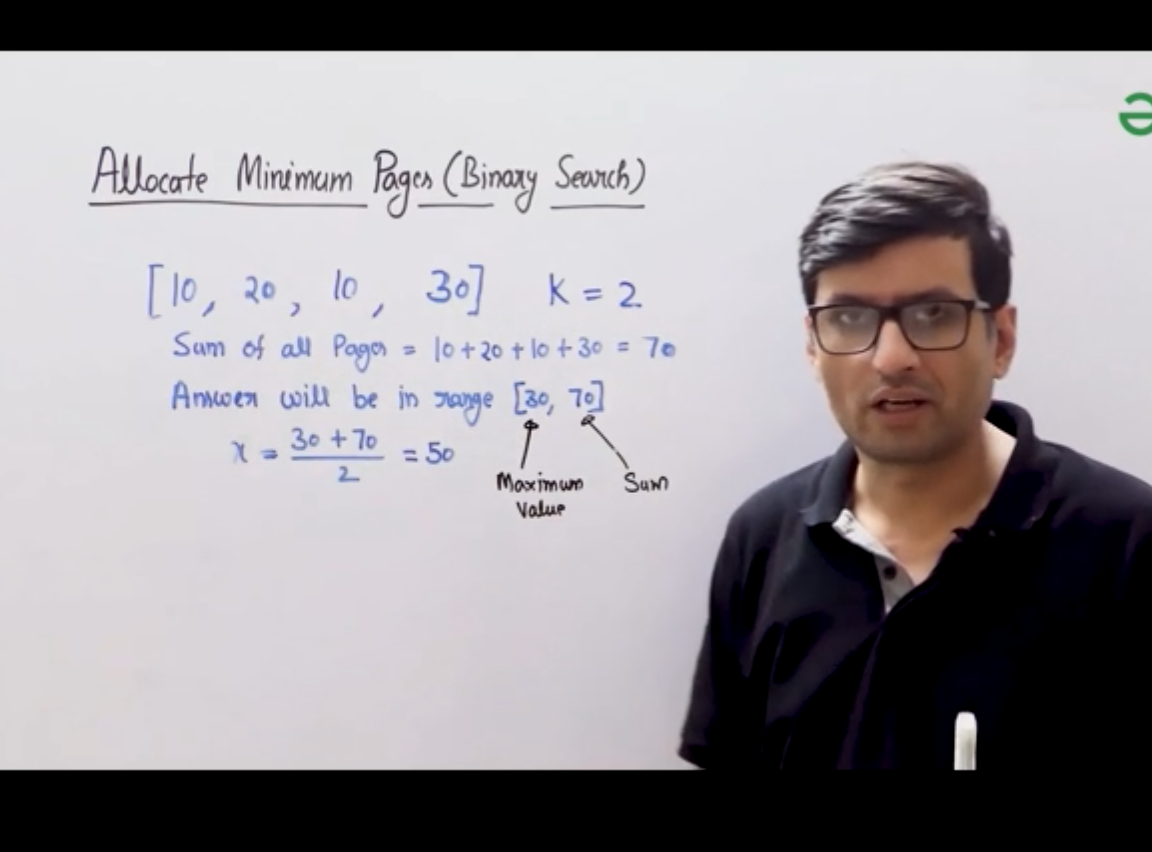 Allocate Minimum Pages (Binary Search)
[10, 20, 10, 30] K = 2
Sum of all Pages = 10+20+10+30 = 70
Answer will be in range [30, 70]
x = 30+70 / 2 = 50
Maximum Value
Sum